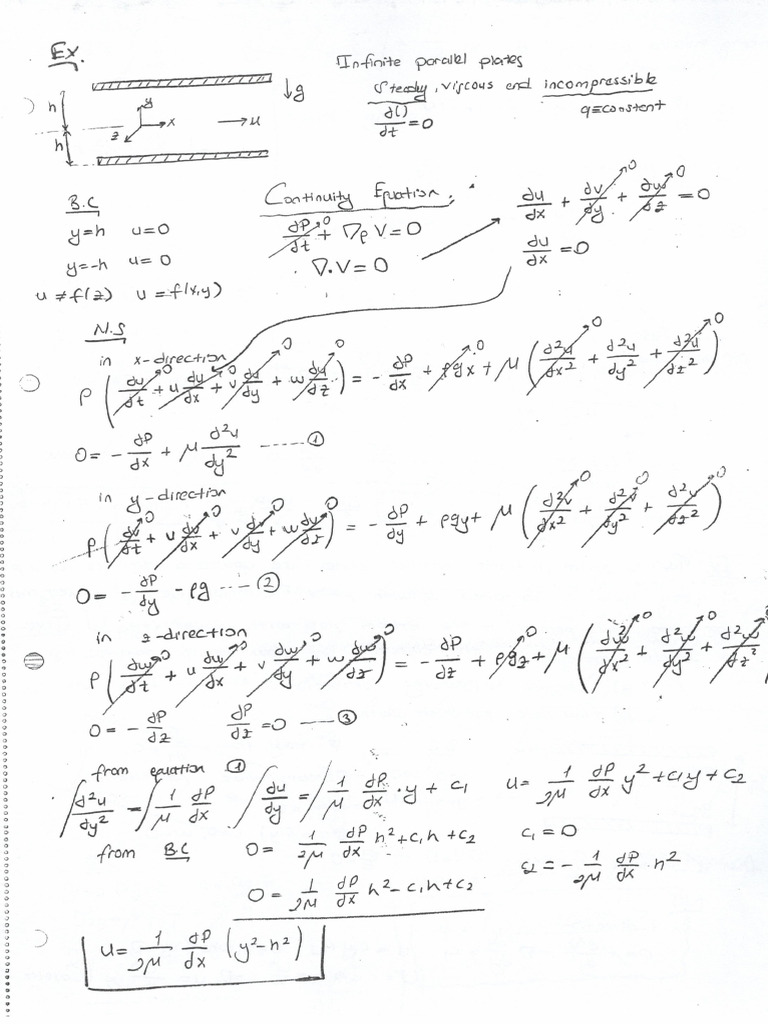 Ex.
Infinite parallel plates
Steady, viscous and incompressible
d()/dt = 0
q=constant
↓g
h
h
y
x
z
→ u
B.C
y=h u=0
y=-h u=0
u ≠ f(z) u = f(x,y)
Continuity Equation.
dP/dt→0 + ∇ρ V = 0
∇.V = 0
du/dx + dv/dy→0 + dw/dz→0 = 0
du/dx = 0
N.S
in x-direction
ρ(du/dt→0 + u du/dx→0 + v du/dy→0 + w du/dz→0) = - dP/dx + ρgx→0 + μ(d²u/dx²→0 + d²u/dy² + d²u/dz²→0)
0 = - dP/dx + μ d²u/dy² ------ ①
in y-direction
ρ(dv/dt→0 + u dv/dx→0 + v dv/dy→0 + w dv/dz→0) = - dP/dy + ρgy + μ(d²v/dx²→0 + d²v/dy²→0 + d²v/dz²→0)
0 = - dP/dy - ρg ---- ②
in z-direction
ρ(dw/dt→0 + u dw/dx→0 + v dw/dy→0 + w dw/dz→0) = - dP/dz + ρgz→0 + μ(d²w/dx²→0 + d²w/dy²→0 + d²w/dz²→0
0 = - dP/dz dP/dz = 0 ---- ③
from equation ①
∫ d²u/dy² = ∫ 1/μ dP/dx ∫ du/dy = ∫ 1/μ dP/dx · y + c1 u = 1/2μ dP/dx y² + c1y + c2
from BC 0 = 1/2μ dP/dx h² + c1h + c2
c1 = 0
0 = 1/2μ dP/dx h² - c1h + c2
c2 = - 1/2μ dP/dx · h²
u = 1/2μ dP/dx (y² - h²)